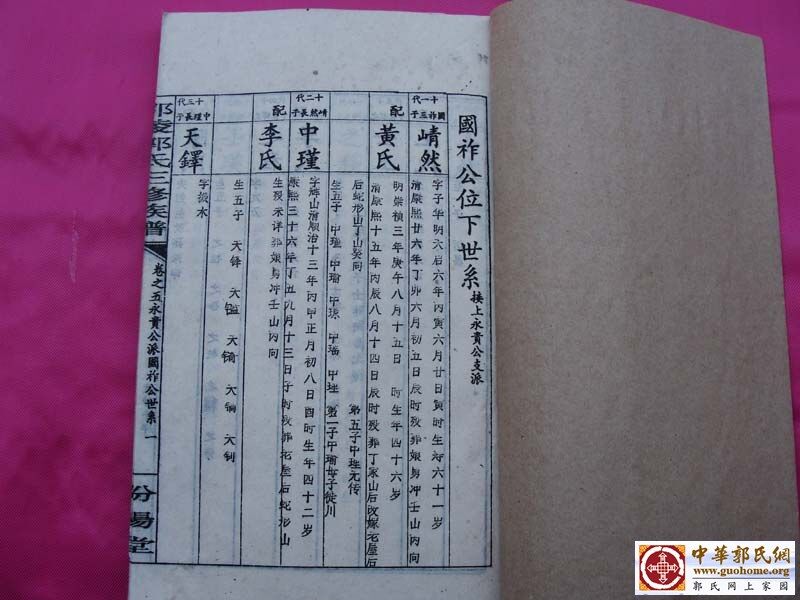 國祚公位下世系 接上永貴公支派
十一代 國祚三子
崝然
字子华明天启六年丙寅六月廿日寅时生寿六十一岁
清康熙廿六年丁卯六月初五日辰时殁葬娘舅冲壬山丙向
配
黃氏
明崇祯三年庚午八月十五日 时生年四十六岁
清康熙十五年丙辰八月十四日辰时殁葬丁家山后改嫁老屋后
后蛇形山丁山癸向
生五子 中瑾 中瑜 中琼 中瑶 中理 第一子中瑜母子徙川
第五子中理无传
十二代 崝然長子
中瑾
字辉山清顺治十三年丙申正月初八日酉时生年四十二岁
康熙三十六年丁丑九月十三日子时殁葬老屋后蛇形山
配
李氏
生殁未详葬娘舅冲壬山丙向
生五子 天铎 天镒 天锜 天铜 天钊
十三代 中瑾長子
天鐸
字振木
郭氏三修族譜
卷之五永貴公派國祚公世系 一
汾陽堂
中華郭氏網
www.guohome.org
郭氏网上家园